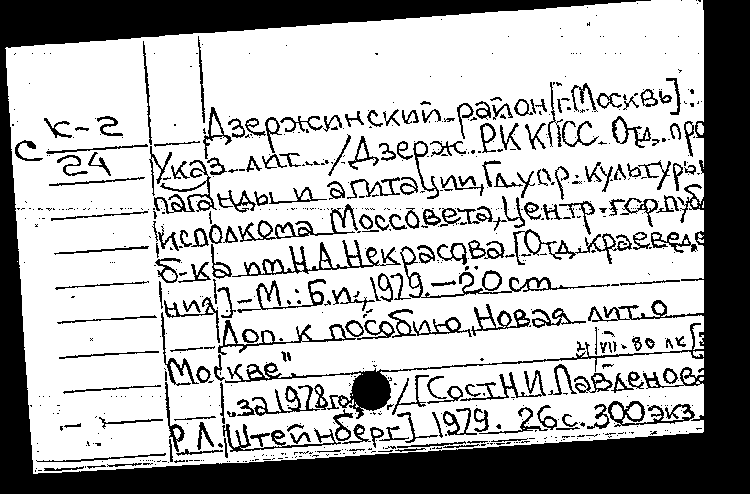 Дзержинский район [г.Москвы]:
С К-2/24
Указ. лит... / Дзерж. РК КПСС. Отд. про
паганды и агитации, Гл. упр. культуры
исполкома Моссовета, Центр. гор. публ
б-ка им. Н.А. Некрасова [Отд. краеведе
ния]. – М.: Б.и., 1979. – 20 см.
Доп. к пособию „Новая лит. о
Москве".
„за 1978 го / [Сост Н.И. Павленова
Р.Л. Штейнберг] 1979. 26 с. 300 экз.